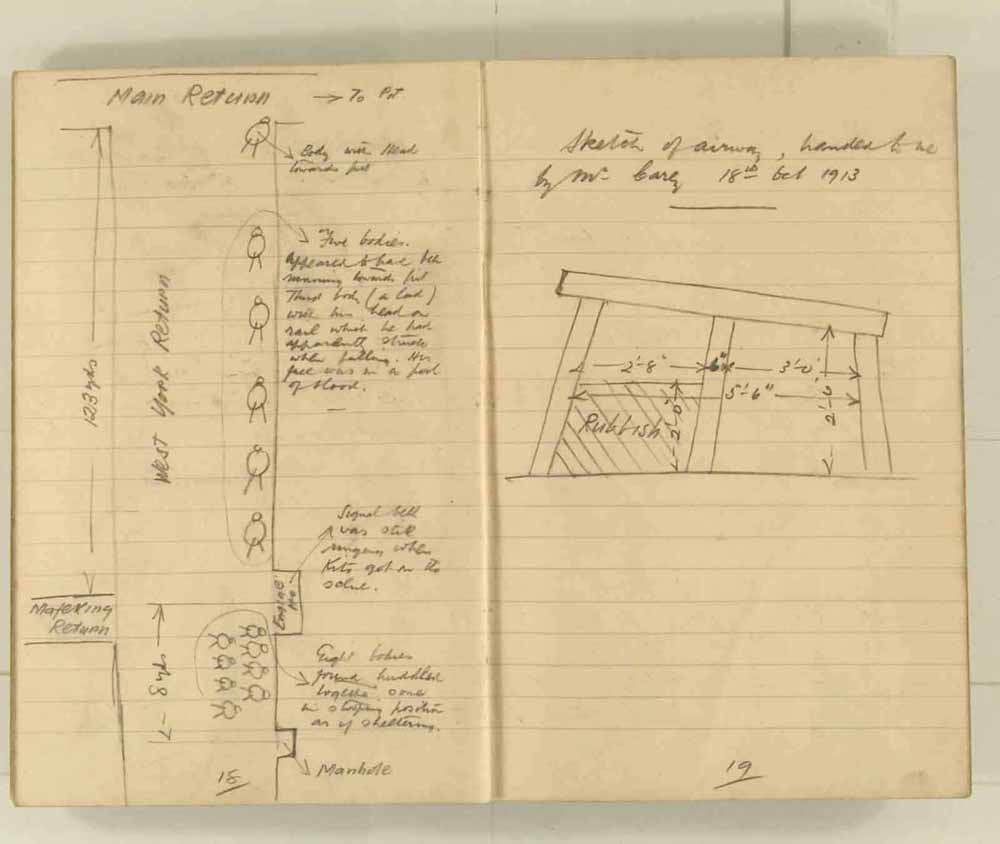 Main Return → To Pit
Body with Head
towards pit
Five bodies.
Appeared to have been
running towards pit
Third body (a lad)
with his head on
rail which he had
apparently struck
when falling. His
face was in a pool
of blood.
123 yds
West York Return
Signal bell
was still
ringing when
Kits got on the
scene.
Engine
Ho
Mafeking
Return
8 yds
Eight bodies
found huddled
together some
in stooping position
as if sheltering.
Manhole
18
Sketch of airway, handed to me
by Mr Carey 18th Oct 1913
2'-8" 6" 3'-0"
5'-6"
Rubbish
2'-0"
19